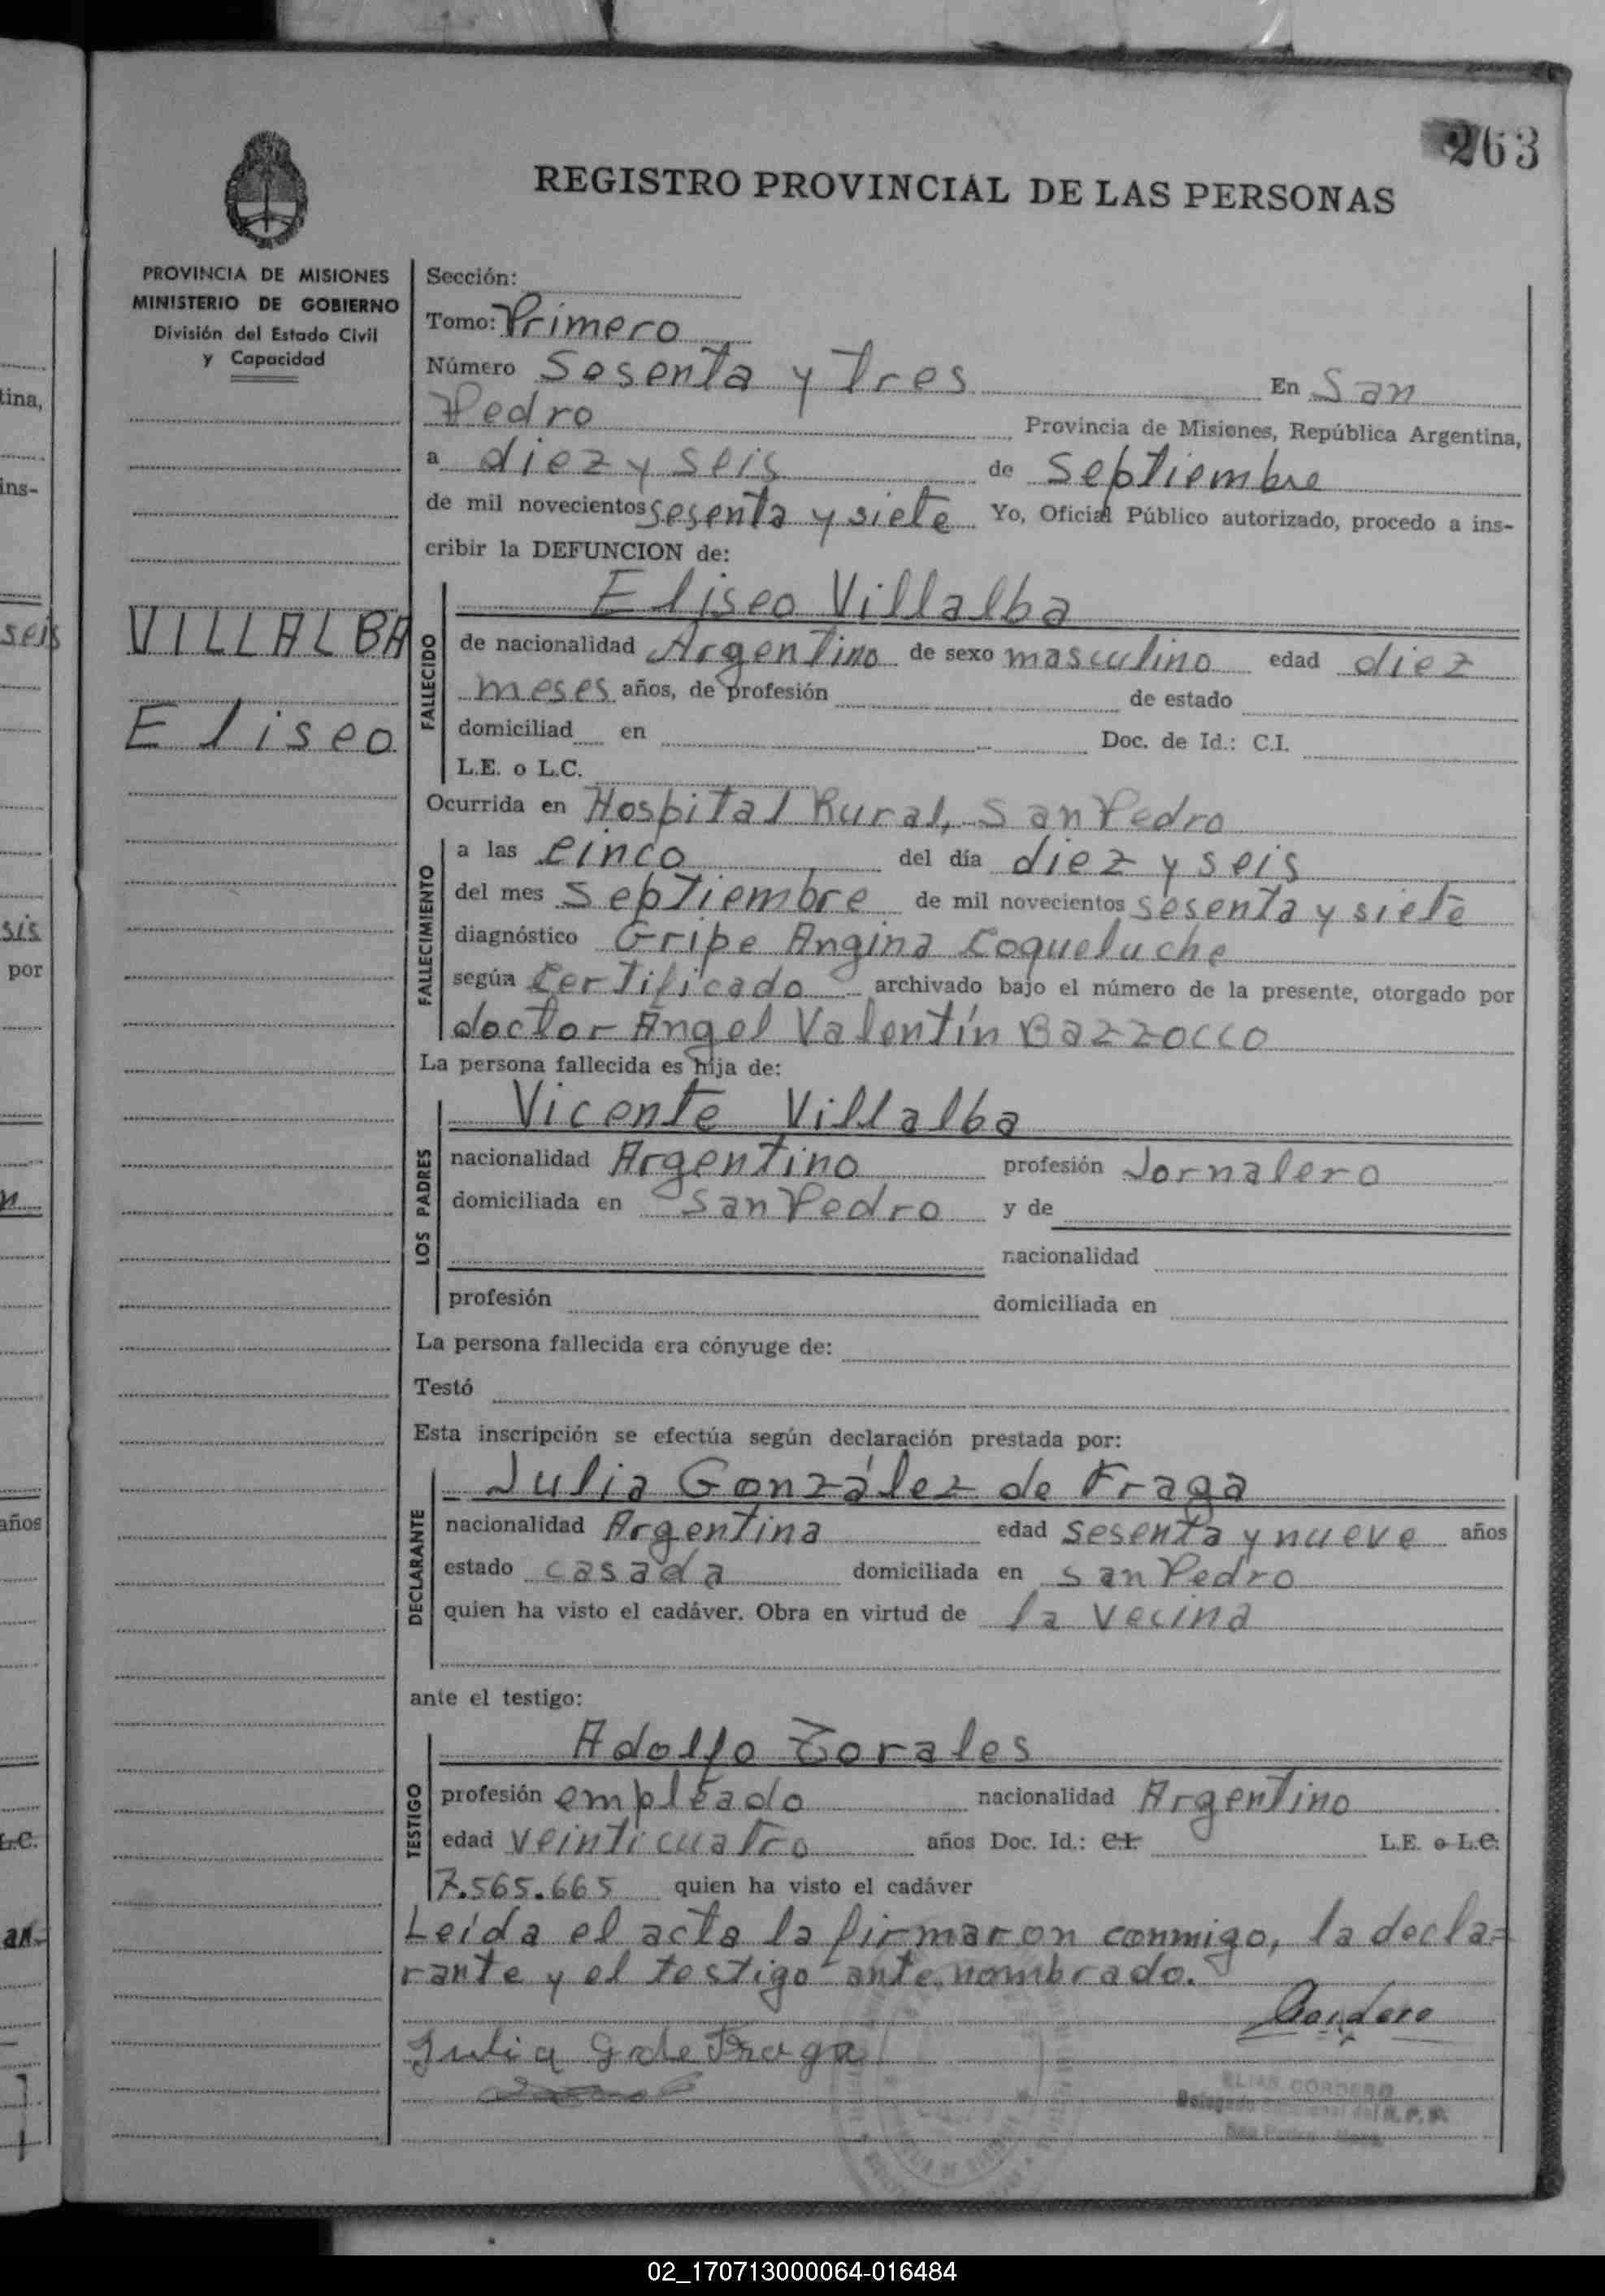 263
REGISTRO PROVINCIAL DE LAS PERSONAS
PROVINCIA DE MISIONES
MINISTERIO DE GOBIERNO
División del Estado Civil
y Capacidad
VILLALBA
Eliseo
Sección:
Tomo: Primero
Número Sesenta y Tres En San
Pedro Provincia de Misiones, República Argentina,
a diez y seis de Septiembre
de mil novecientos sesenta y siete Yo, Oficial Público autorizado, procedo a ins-
cribir la DEFUNCION de:
FALLECIDO
Eliseo Villalba
de nacionalidad Argentino de sexo masculino edad diez
meses años, de profesión de estado
domiciliad en Doc. de Id.: C.I.
L.E. o L.C.
Ocurrida en Hospital Rural, San Pedro
FALLECIMIENTO
a las cinco del día diez y seis
del mes Septiembre de mil novecientos sesenta y siete
diagnóstico Gripe Angina Coqueluche
según Certificado archivado bajo el número de la presente, otorgado por
doctor Angel Valentín Bazzocco
La persona fallecida es hija de:
LOS PADRES
Vicente Villalba
nacionalidad Argentino profesión Jornalero
domiciliada en San Pedro y de
nacionalidad
profesión domiciliada en
La persona fallecida era cónyuge de:
Testó
Esta inscripción se efectúa según declaración prestada por:
DECLARANTE
Julia González de Fraga
nacionalidad Argentina edad sesenta y nueve años
estado casada domiciliada en San Pedro
quien ha visto el cadáver. Obra en virtud de la vecina
ante el testigo:
TESTIGO
Adolfo Zorales
profesión empleado nacionalidad Argentino
edad veinticuatro años Doc. Id.: C.I. L.E. o L.C.
7.565.665 quien ha visto el cadáver
Leída el acta la firmaron conmigo, la decla=
rante y el testigo ante nombrado.
Cordero
Julia G de Fraga
ELIAS CORDERO
R.P.P.
tina,
ins-
seis
sis
por
años
L.C.
02_170713000064-016484